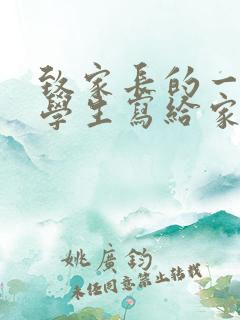 致家長的一
學生寫給家
姚廣鈞
未任同意禁止轉載